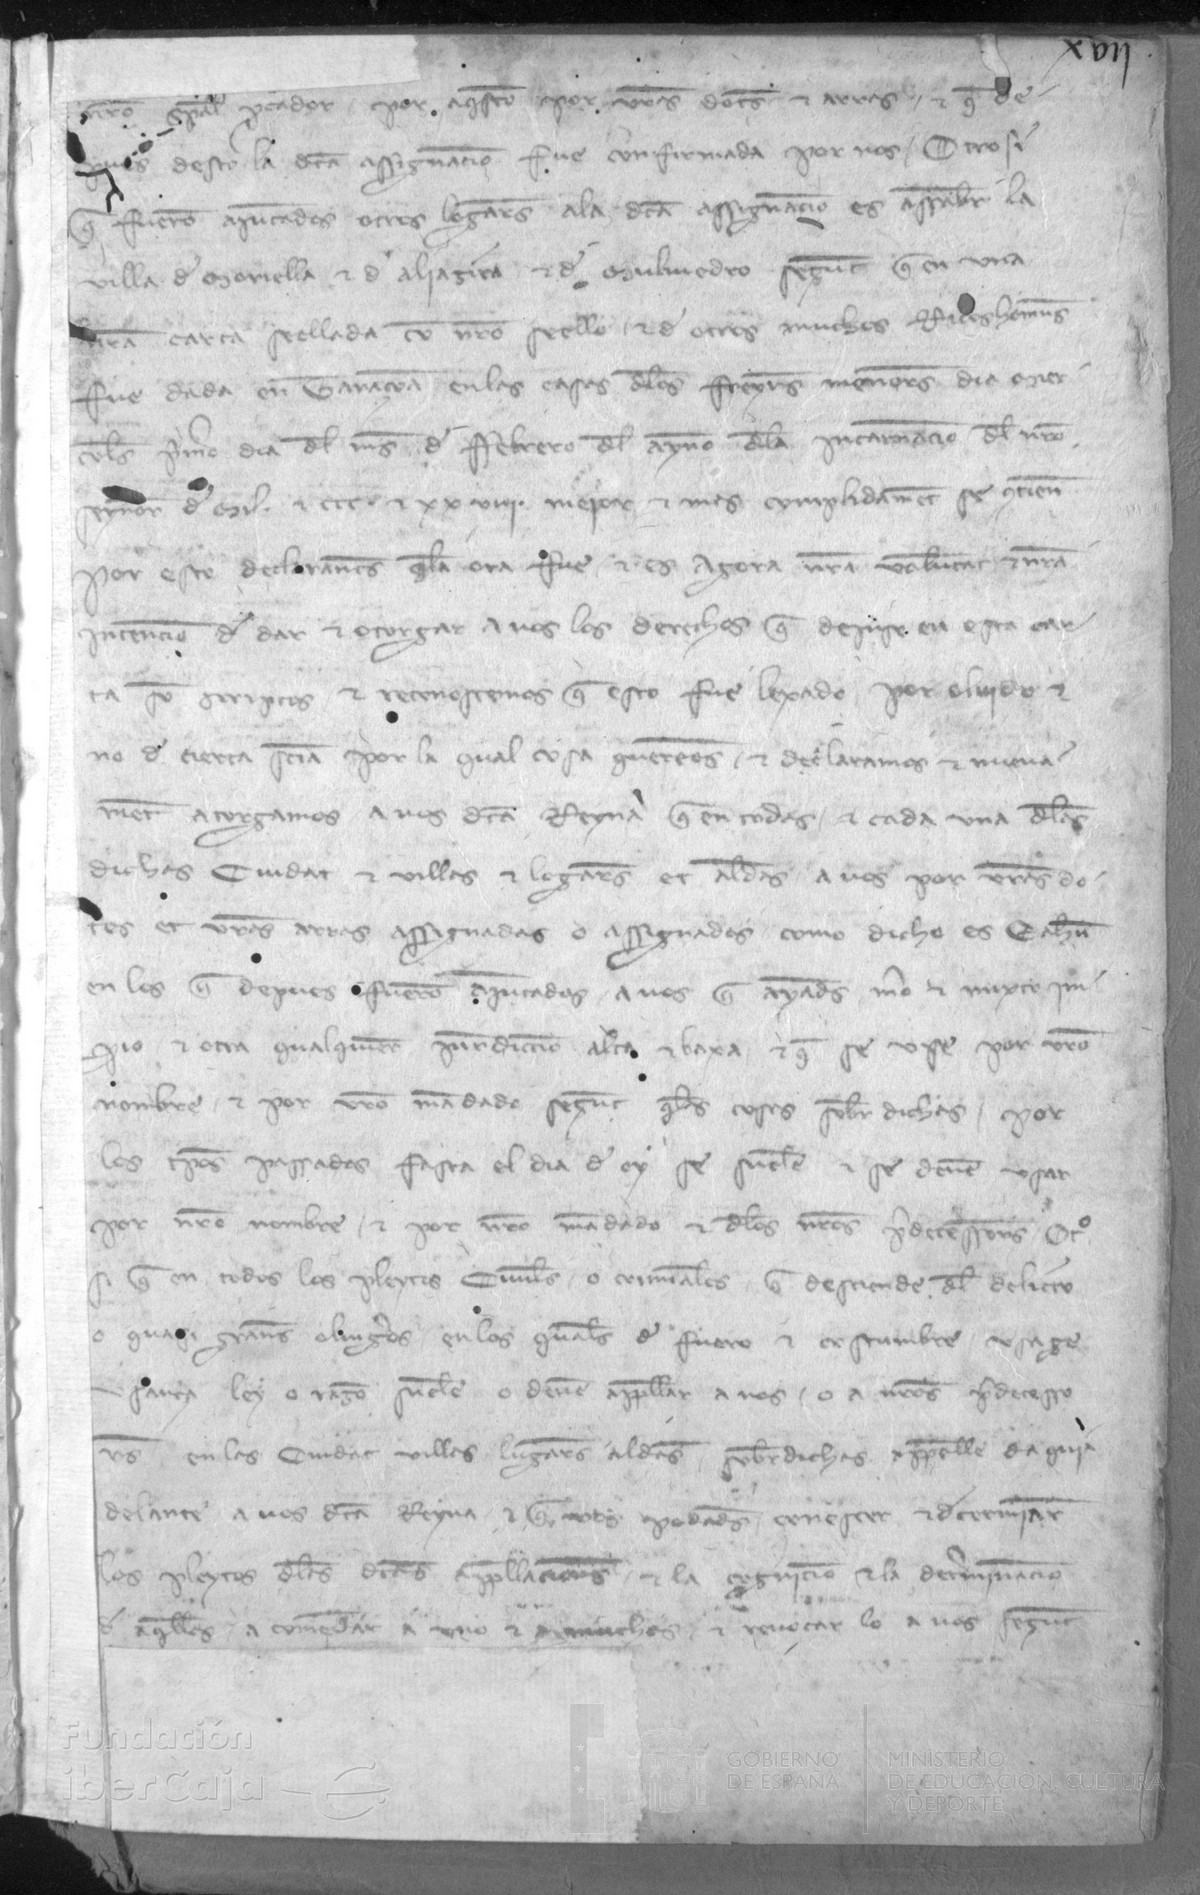 xvij
nro spal pcador / por aqsto por vras dots & arras / & q de
pues desto la dca assignacio fue confirmada por nos / Otrosi
q fuero aiuntados otros logars ala dca assignacio es assabr la
villa d Moriella & d aljazira & d Muluiedro segunt q en vna
nra carta seellada co nro seello / & d otros muchos Ricoshoms
fue dada en Caragoça en las casas dlos freyrs menors dia Mier
cols pmo dia dl ms d ffebrero dl aynno dla incarnacio dl nro
seynnor d Mil & ccc & xx viij mejor & mas complidament se qtien
por esto declarants qla ora fue & es Agora nra voluntat & nra
intencio d dar & otorgar a vos los derechos q dejuso en esta car
ta so scriptos & reconoscemos q esto fue lexado por oluido &
no d cierta scia por la qual cosa queremos / & declaramos & nueua
ment atorgamos a vos dca Reyna q en todas / & cada vna dlas
dichas Ciudat & villas & logars et aldas a vos por vras do
tes et vras arras assignadas o assignados como dicho es Cahun
en los q depues fuero aiuntados a vos q ayads mo & mixto im
pio & otra qualquiere iurdiccio alta & baxa & q se vse por vro
nombre / & por vro mādado segunt qlas cosas sobrdichas / por
los tpos passados fasta el dia d oy se suele & se deue vsar
por nro nombre / & por nro mādado & dlos nros pdecessors / Otº
si q en todos los pleytos Ciuils / o criminales / q desciende dl delicto
o quasi en los quals d fuero & costumbre vsage
vsança ley o razo suele o deue appellar a nos / o a nros pdecesso
rs en las Ciudat villas lugars aldas sobrdichas appelle daqui a
delante a vos dca Reyna & q vos podads conoscer & determiar
los pleytos dlas dcas appllacions / & la cognicio & la determinacio
d aqllos / a comedar a vno & a muchos / & reuocar lo a vos segunt
Fundación
iberCaja
GOBIERNO
DE ESPAÑA
MINISTERIO
DE EDUCACIÓN, CULTURA
Y DEPORTE